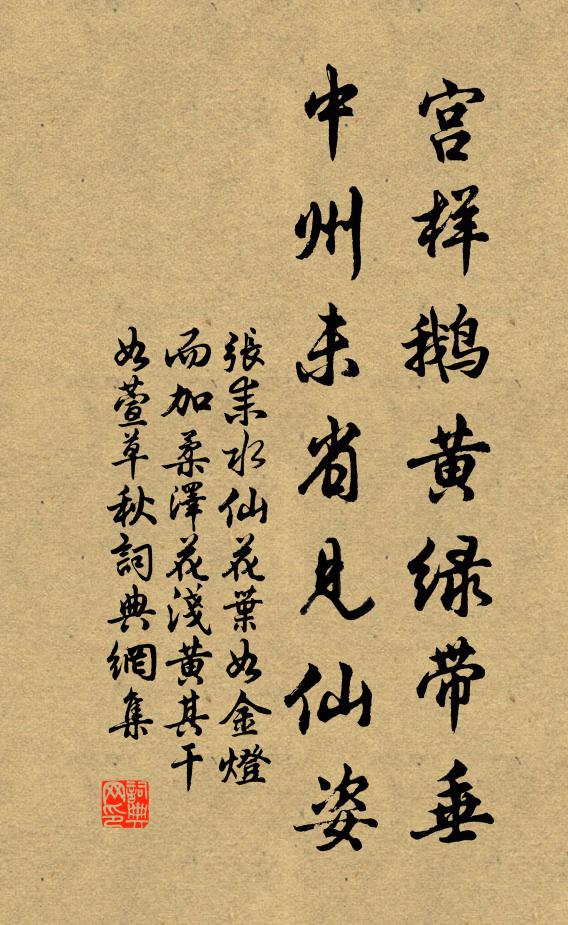 宫样鹅黄绿带垂
中州未省见仙姿
張耒水仙花葉如金燈
而加柔澤花淺黄其干
如萱草秋詞典網集
詞典網印